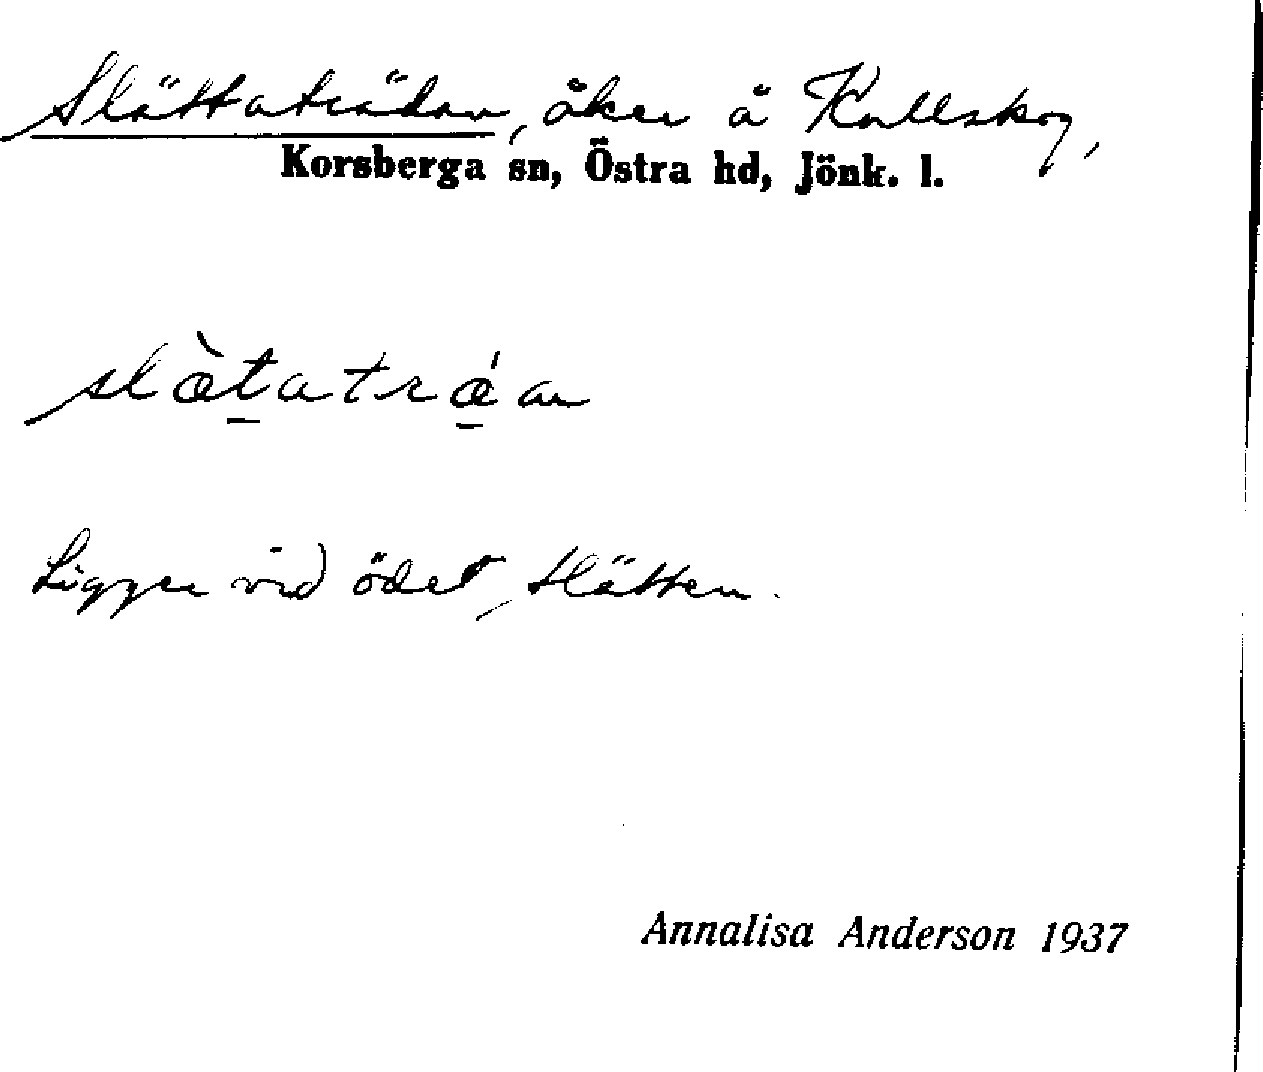 Slättaträdan, åker å Kallskog,
Korsberga sn, Östra hd, Jönk. l.
slæ̀tatrǽan
Ligger vid ödet, Slätten.
Annalisa Anderson 1937